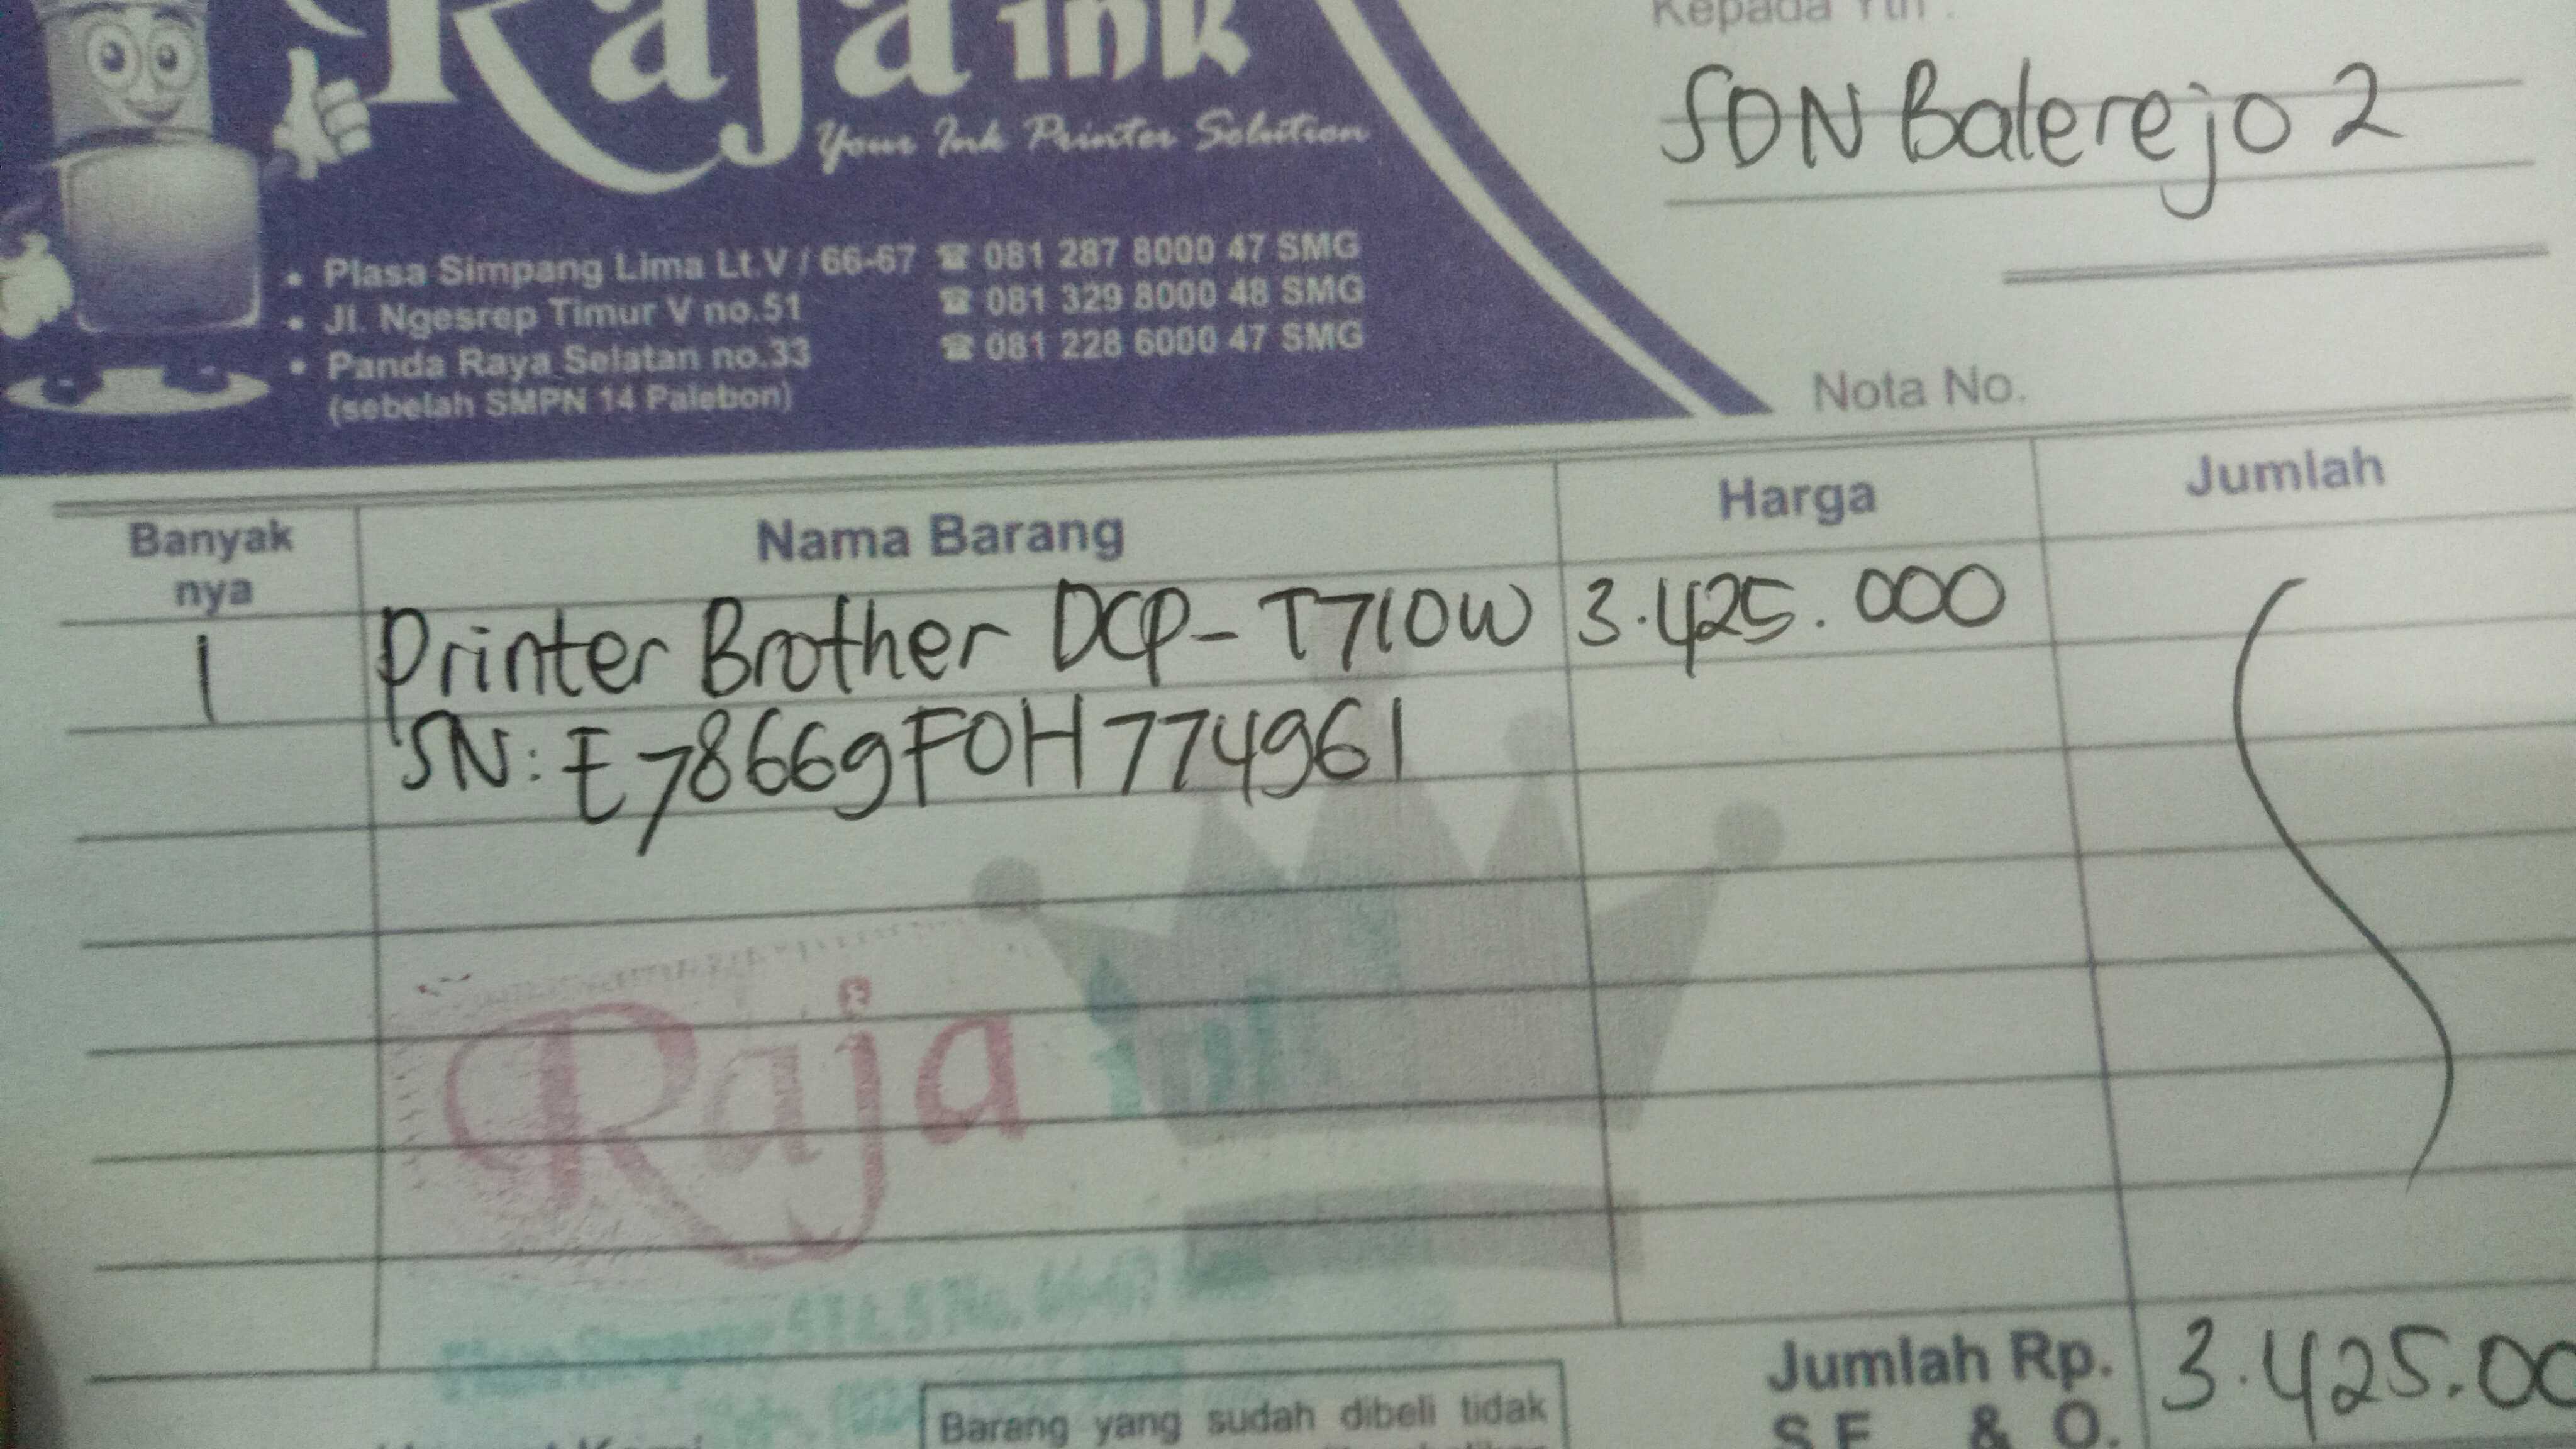 Raja ink
Your Ink Printer Solution
• Plasa Simpang Lima Lt.V / 66-67 ☎ 081 287 8000 47 SMG
• Jl. Ngesrep Timur V no.51 ☎ 081 329 8000 48 SMG
• Panda Raya Selatan no.33 ☎ 081 228 6000 47 SMG
(sebelah SMPN 14 Palebon)
Kepada Yth :
SDN Balerejo 2
Nota No.
Banyak nya Nama Barang Harga Jumlah
1 Printer Brother DCP-T710W 3.425.000
SN: E78669F0H774961
Raja ink
Jumlah Rp. 3.425.00
S E & O.
Barang yang sudah dibeli tidak